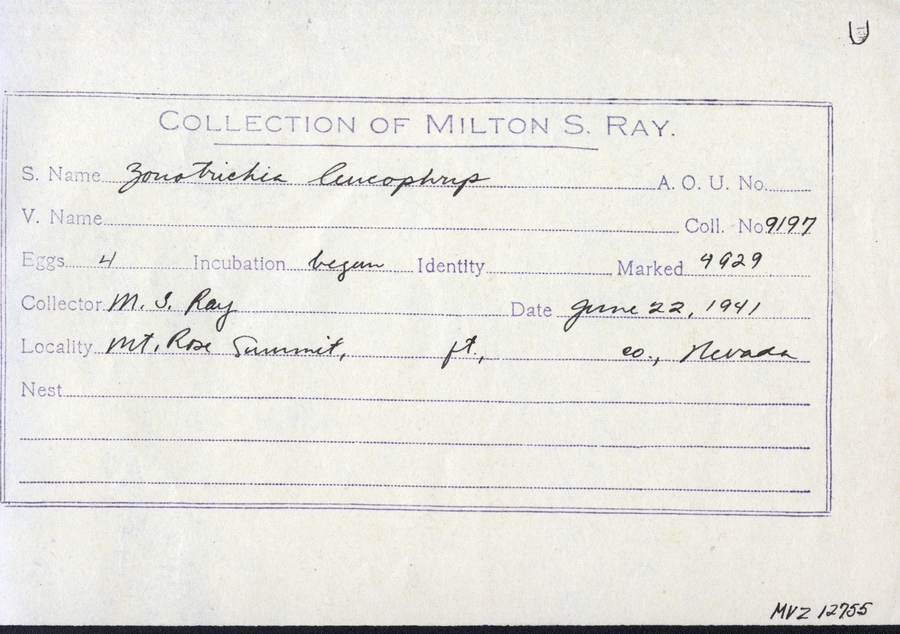 U
COLLECTION OF MILTON S. RAY.
S. Name Zonotrichia leucophrys A. O. U. No.
V. Name Coll. No 9197
Eggs 4 Incubation begun Identity Marked 4929
Collector M. S. Ray Date June 22, 1941
Locality Mt. Rose Summit, ft., co., Nevada
Nest
MVZ 12755